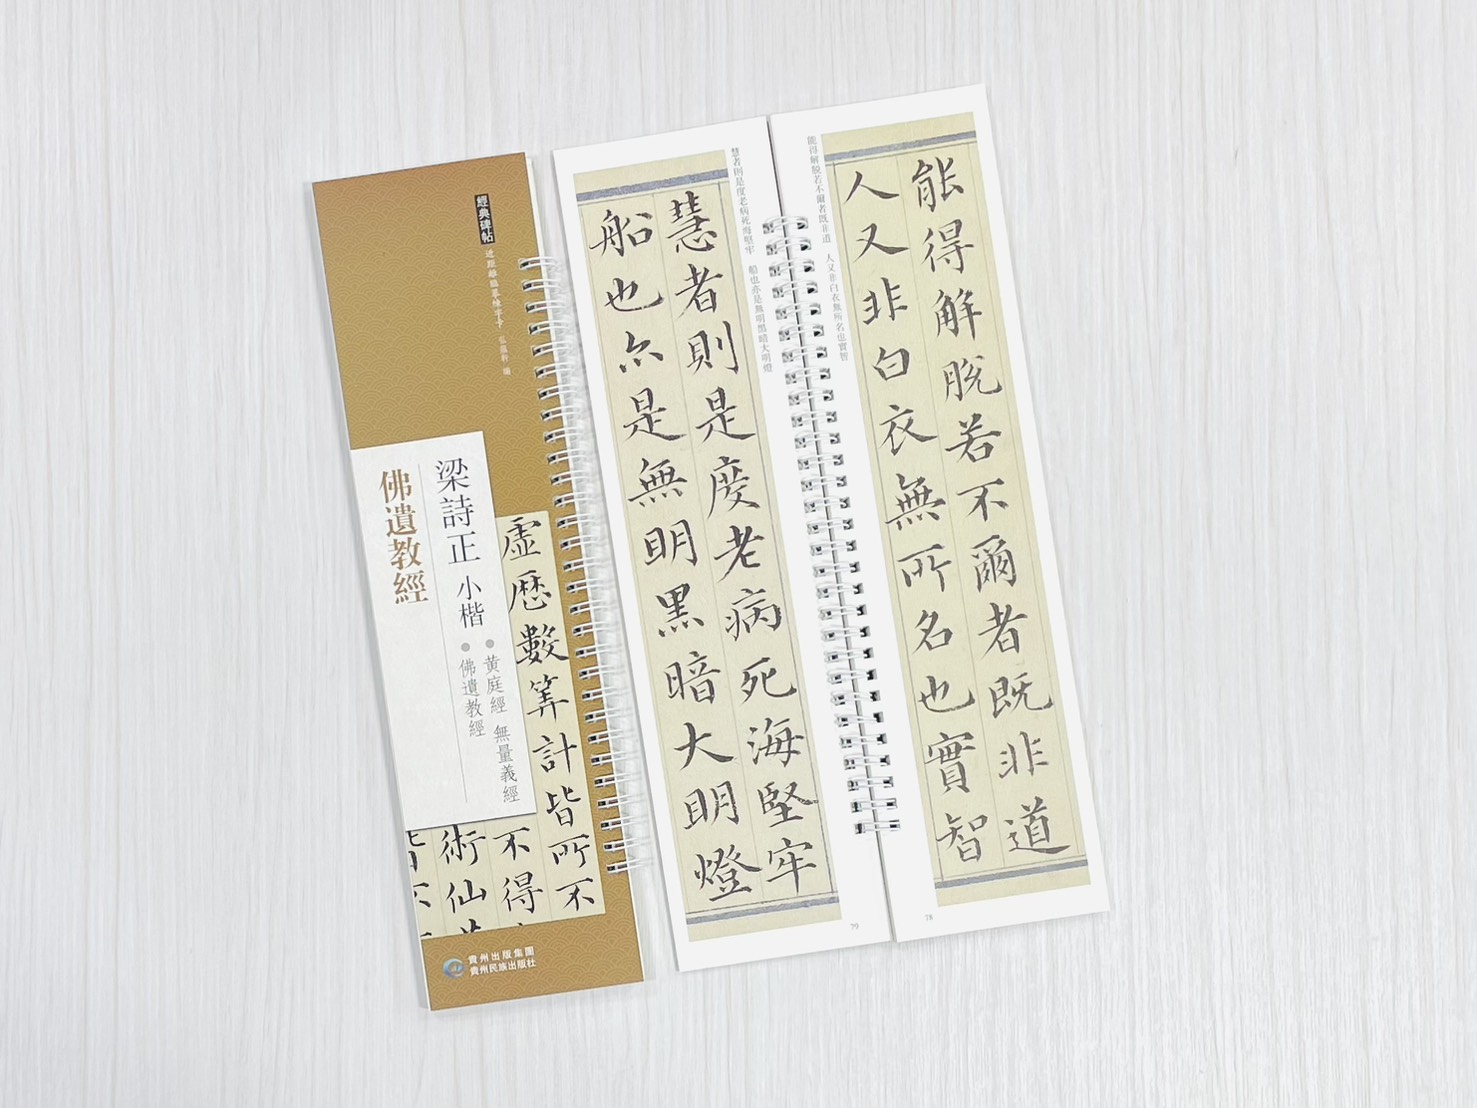 經典碑帖
近距離臨摹練字卡 弘蘊軒 編
梁詩正 小楷
佛遺教經
●黃庭經 無量義經
●佛遺教經
虛歷數筭計皆所不
不得
術仙
貴州出版集團
貴州民族出版社
能得解脫若不爾者既非道 人又非白衣無所名也實智
能得解脫若不爾者既非道
人又非白衣無所名也實智
78
慧者則是度老病死海堅牢 船也亦是無明黑暗大明燈
慧者則是度老病死海堅牢
船也亦是無明黑暗大明燈
79